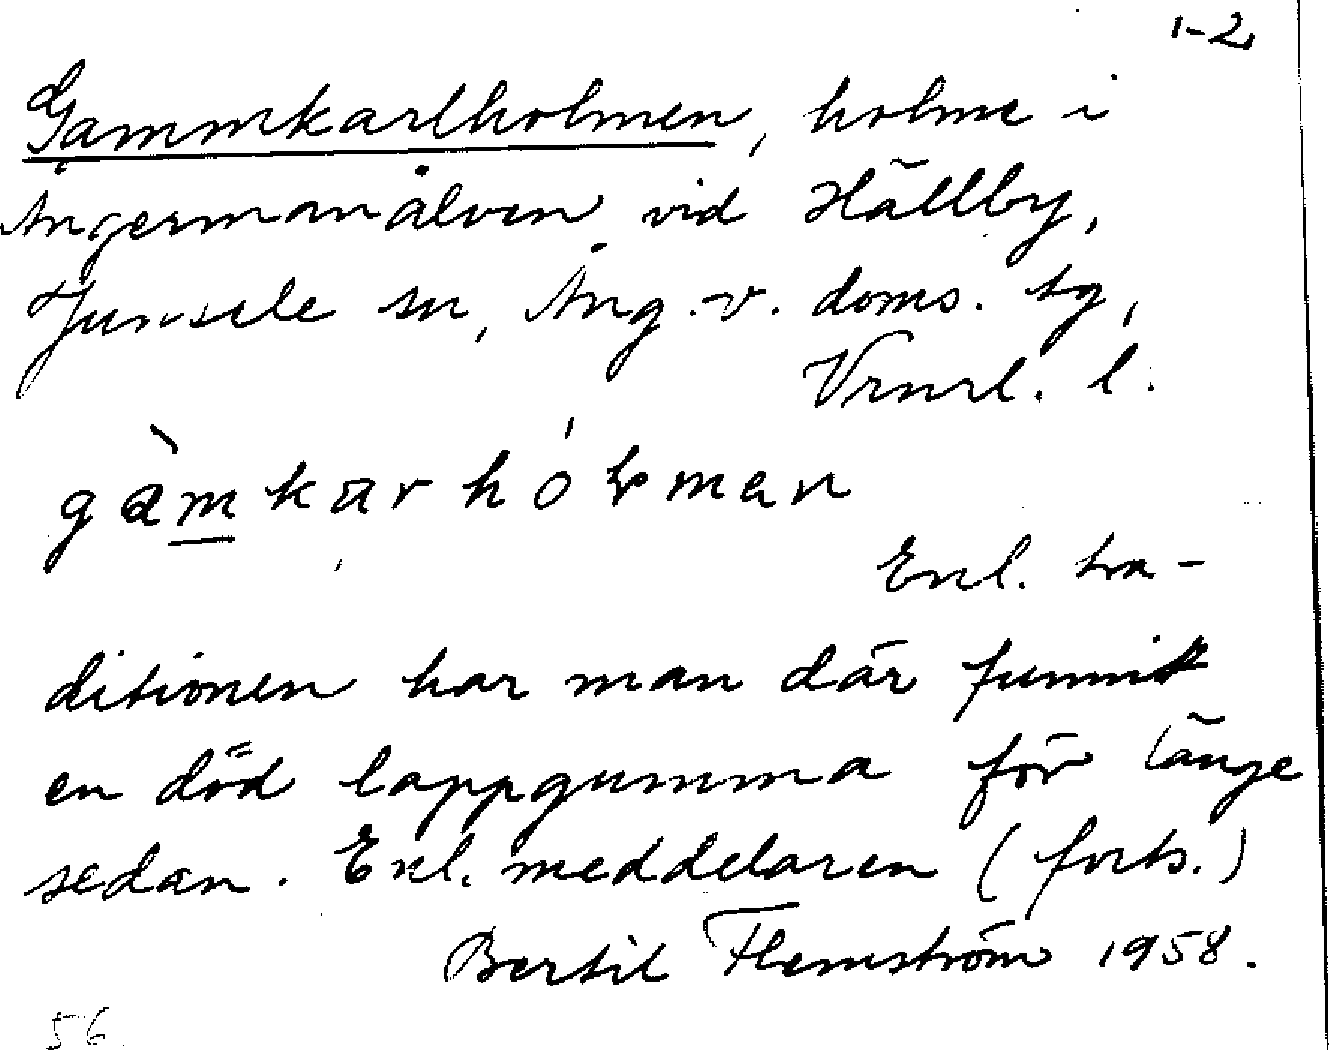 1-2
Gammkarlholmen, holme i
Ångermanälven vid Hällby,
Junsele sn, Ång. v. doms. tg,
Vrnrl. l.
gàmkarhólmen
Enl. tra-
ditionen har man där funnit
en död lappgumma för länge
sedan. Enl. meddelaren (forts.)
Bertil Flemström 1958.
56